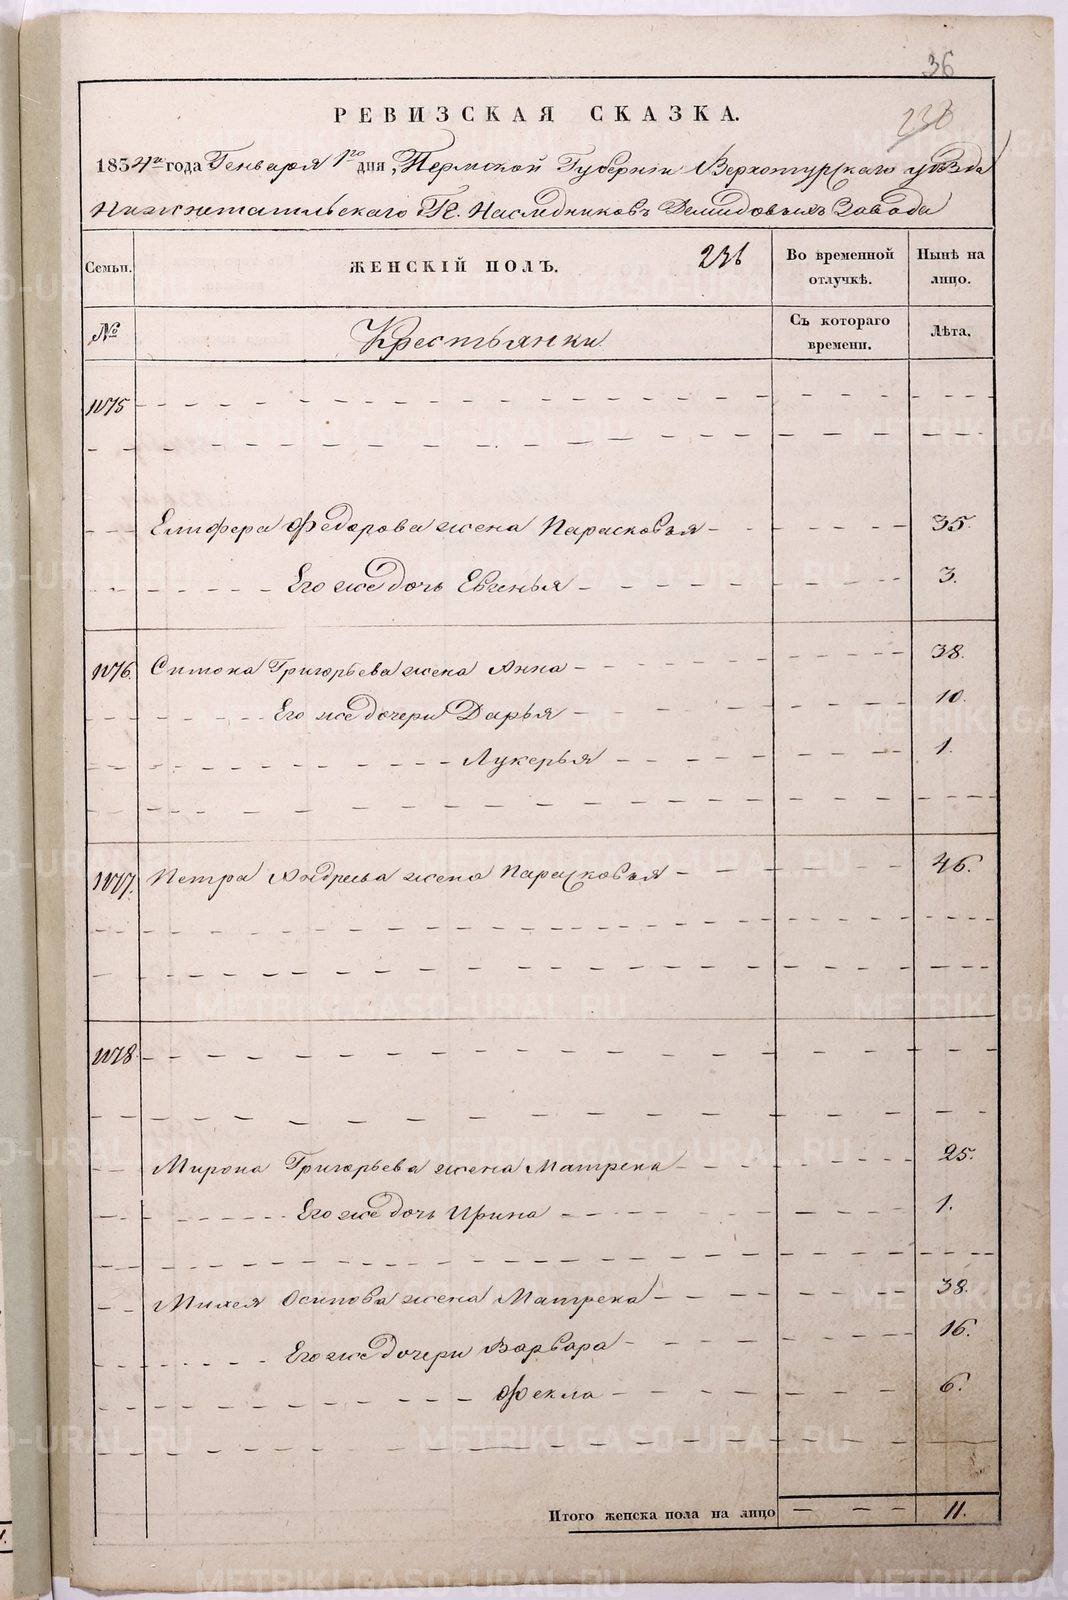 36
РЕВИЗСКАЯ СКАЗКА.
238
1834го года Генваря 1го дня, Пермской Губернiи Верхотурскаго уѣзда
Нижнетагильскаго Гг. Наслѣдниковъ Демидовыхъ Завода
Семьи. ЖЕНСКІЙ ПОЛЪ. 236 Во временной отлучкѣ. Нынѣ на лицо.
№ Крестьянки Съ котораго времени. Лѣта.
1075
Елифера Федорова жена Парасковья 35.
Его же дочь Евгенья 3.
1076. Григорьева жена Анна 38.
Его же дочери Дарья 10.
Лукерья 1.
1077. Петра Андреева жена Парасковья 46.
1078
Мирона Григорьева жена Матрена 25.
Его же дочь Ирина 1.
Михея Осипова жена Матрена 38.
Его же дочери Варвара 16.
Фекла 6.
Итого женска пола на лицо 11.
METRIKI.GASO-URAL.RU